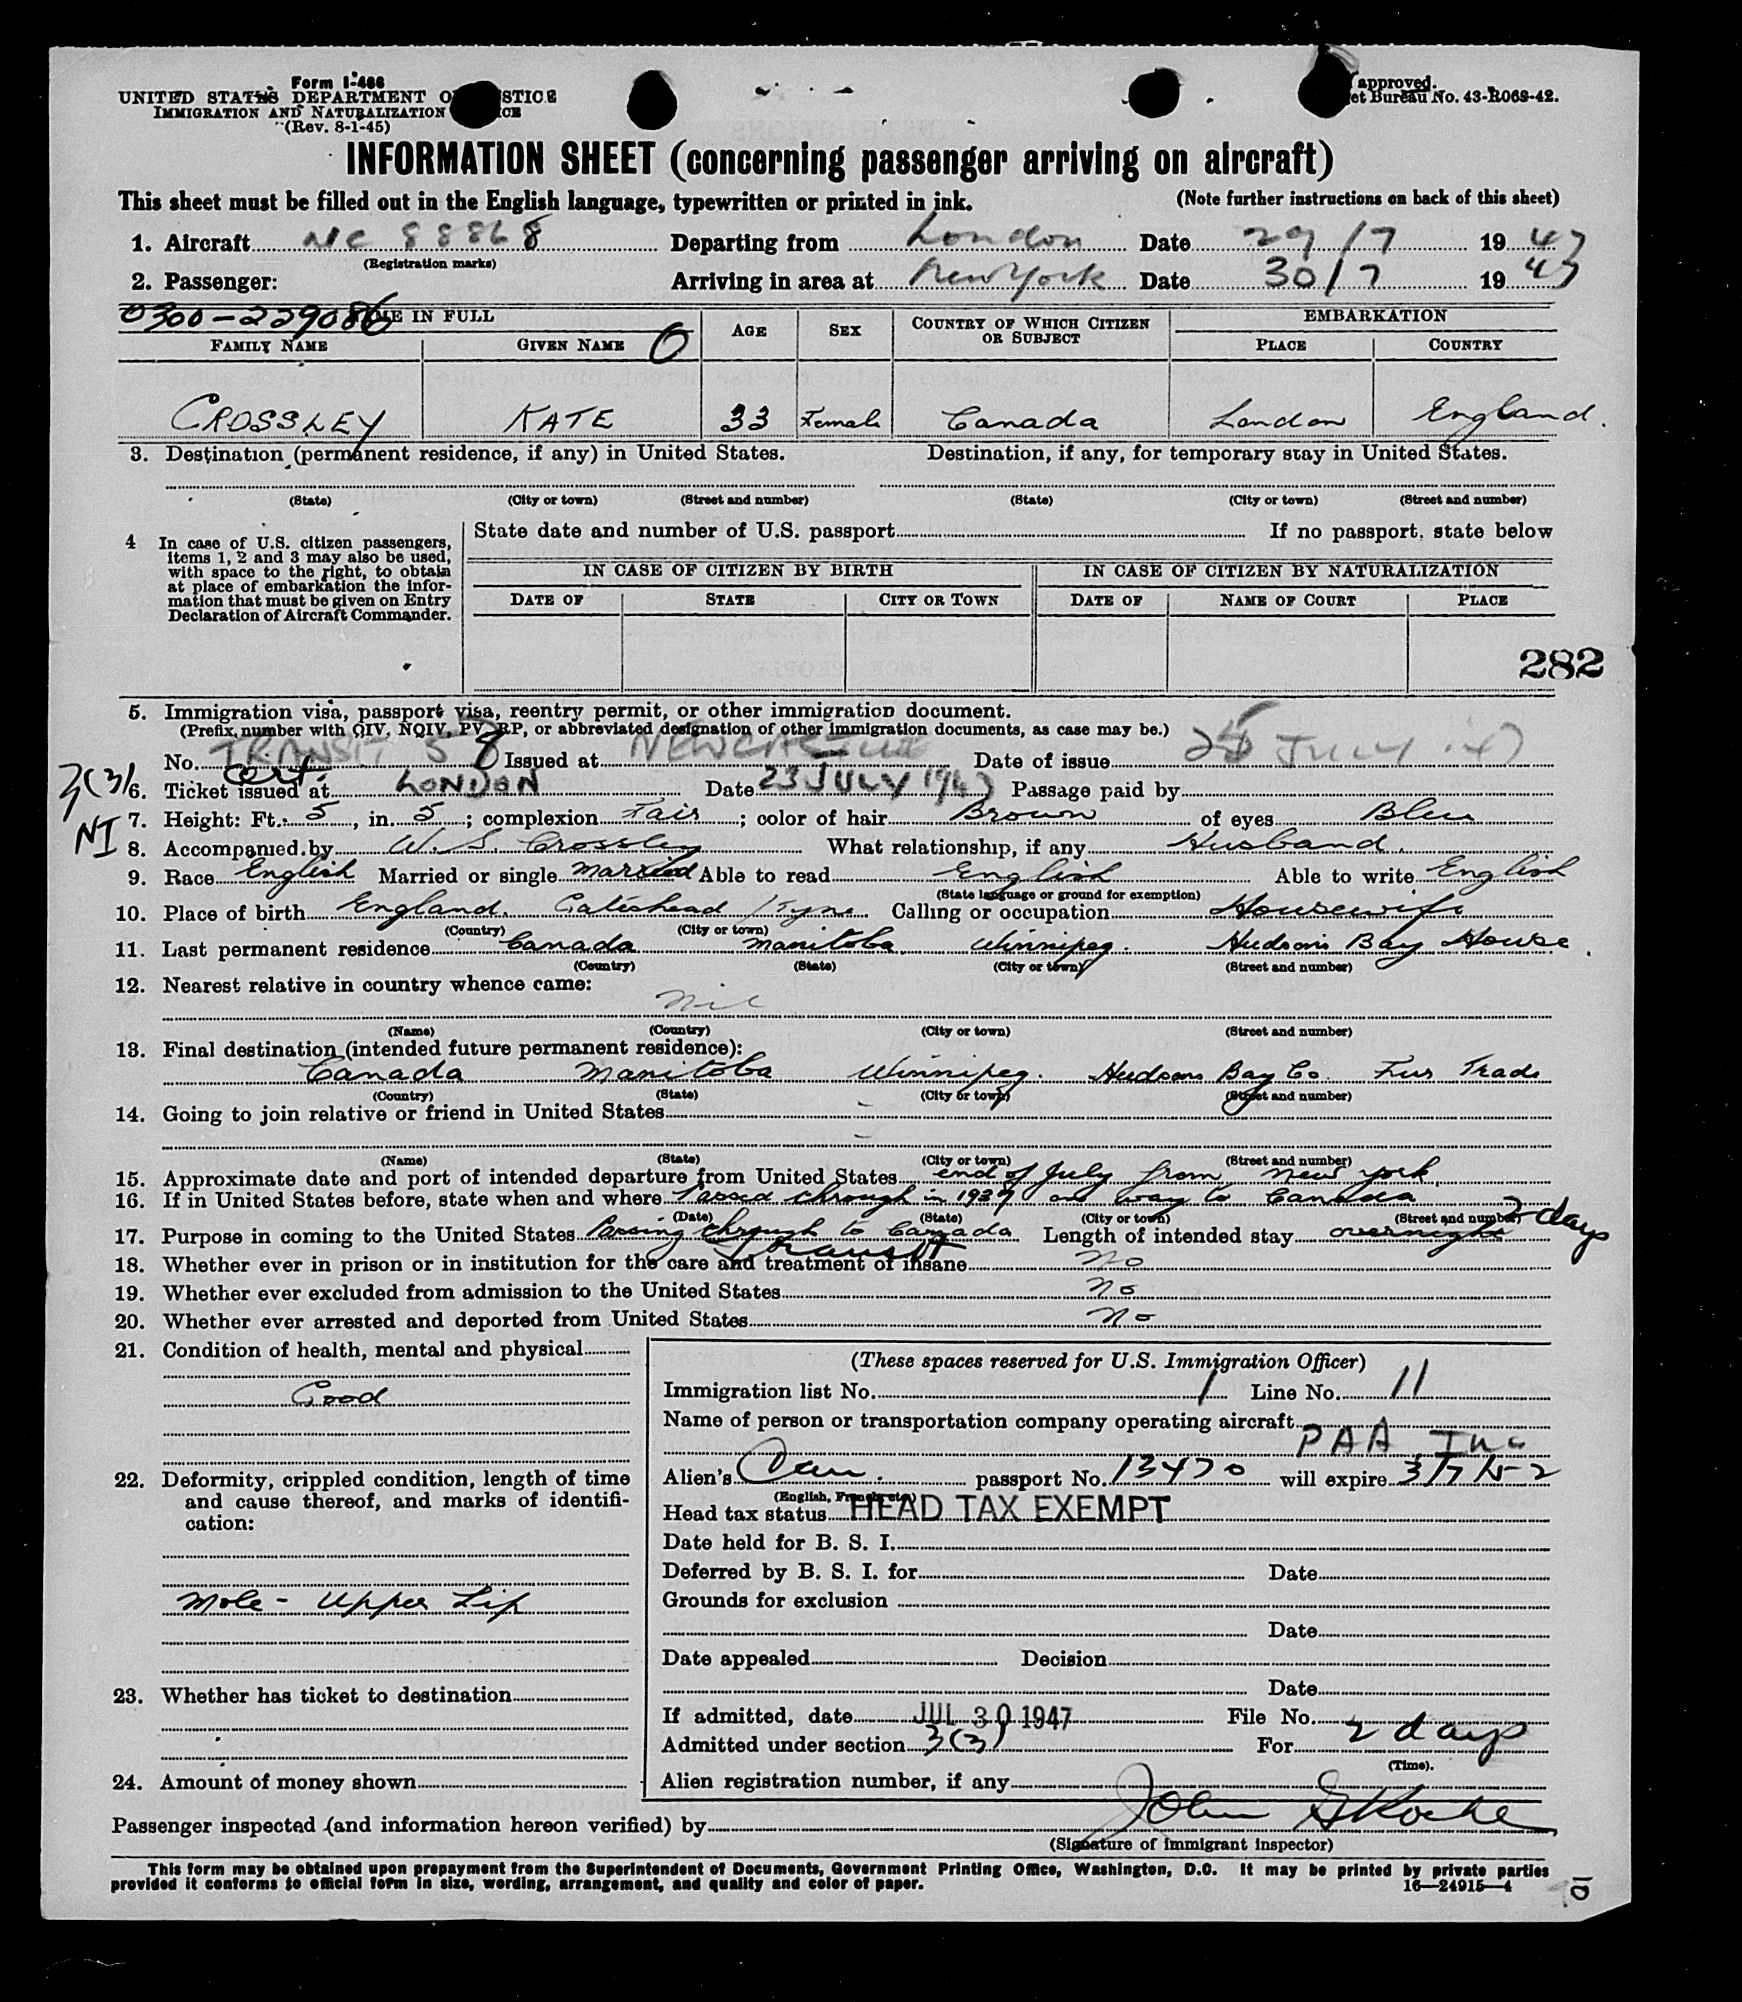 Form I-466
UNITED STATES DEPARTMENT OF JUSTICE
IMMIGRATION AND NATURALIZATION
(Rev. 8-1-45)
approved.
et Bureau No. 43-R069-42.
INFORMATION SHEET (concerning passenger arriving on aircraft)
This sheet must be filled out in the English language, typewritten or printed in ink. (Note further instructions on back of this sheet)
1. Aircraft NC 88868 Departing from London Date 29/7 1947
(Registration marks)
2. Passenger: Arriving in area at New York Date 30/7 1947
0300-229086 ME IN FULL
FAMILY NAME GIVEN NAME AGE SEX COUNTRY OF WHICH CITIZEN OR SUBJECT EMBARKATION PLACE COUNTRY
CROSSLEY KATE 33 Female Canada London England.
3. Destination (permanent residence, if any) in United States. Destination, if any, for temporary stay in United States.
(State) (City or town) (Street and number) (State) (City or town) (Street and number)
4 In case of U.S. citizen passengers, items 1, 2 and 3 may also be used, with space to the right, to obtain at place of embarkation the information that must be given on Entry Declaration of Aircraft Commander.
State date and number of U.S. passport If no passport, state below
IN CASE OF CITIZEN BY BIRTH IN CASE OF CITIZEN BY NATURALIZATION
DATE OF STATE CITY OR TOWN DATE OF NAME OF COURT PLACE
282
5. Immigration visa, passport visa, reentry permit, or other immigration document.
(Prefix number with QIV, NQIV, PV, RP, or abbreviated designation of other immigration documents, as case may be.)
No. TRANSIT cert. 58 Issued at NEWCASTLE Date of issue 25 JULY 47
3(3)
6. Ticket issued at LONDON Date 23 JULY 1947 Passage paid by
NI
7. Height: Ft. 5, in. 5; complexion Fair; color of hair Brown of eyes Blue
8. Accompanied by W. S. Crossley What relationship, if any Husband.
9. Race English Married or single Married Able to read English Able to write English
(State language or ground for exemption)
10. Place of birth England. Gateshead /Tyne Calling or occupation Housewife
(Country) (City or town)
11. Last permanent residence Canada Manitoba Winnipeg. Hudson's Bay House.
(Country) (State) (City or town) (Street and number)
12. Nearest relative in country whence came:
Nil
(Name) (Country) (City or town) (Street and number)
13. Final destination (intended future permanent residence):
Canada Manitoba Winnipeg. Hudsons Bay Co. Fur Trade
(Country) (State) (City or town) (Street and number)
14. Going to join relative or friend in United States
(Name) (State) (City or town) (Street and number)
15. Approximate date and port of intended departure from United States end of July from New York.
16. If in United States before, state when and where Passed through in 1937 on way to Canada
(Date) (State) (City or town) (Street and number)
17. Purpose in coming to the United States Passing through to Canada Transit Length of intended stay overnight 2 days
18. Whether ever in prison or in institution for the care and treatment of insane No
19. Whether ever excluded from admission to the United States No
20. Whether ever arrested and deported from United States No
21. Condition of health, mental and physical
Good
22. Deformity, crippled condition, length of time and cause thereof, and marks of identification:
Mole - Upper Lip
23. Whether has ticket to destination
24. Amount of money shown
(These spaces reserved for U.S. Immigration Officer)
Immigration list No. 1 Line No. 11
Name of person or transportation company operating aircraft
PAA Inc
Alien's Can. passport No. 13470 will expire 3/7/52
(English, French, etc.)
Head tax status HEAD TAX EXEMPT
Date held for B. S. I.
Deferred by B. S. I. for Date
Grounds for exclusion
Date
Date appealed Decision
Date
If admitted, date JUL 30 1947 File No.
Admitted under section 3(3) For 2 days
(Time).
Alien registration number, if any
Passenger inspected (and information hereon verified) by John
(Signature of immigrant inspector)
This form may be obtained upon prepayment from the Superintendent of Documents, Government Printing Office, Washington, D.C. It may be printed by private parties
provided it conforms to official form in size, wording, arrangement, and quality and color of paper. 16—24915—4